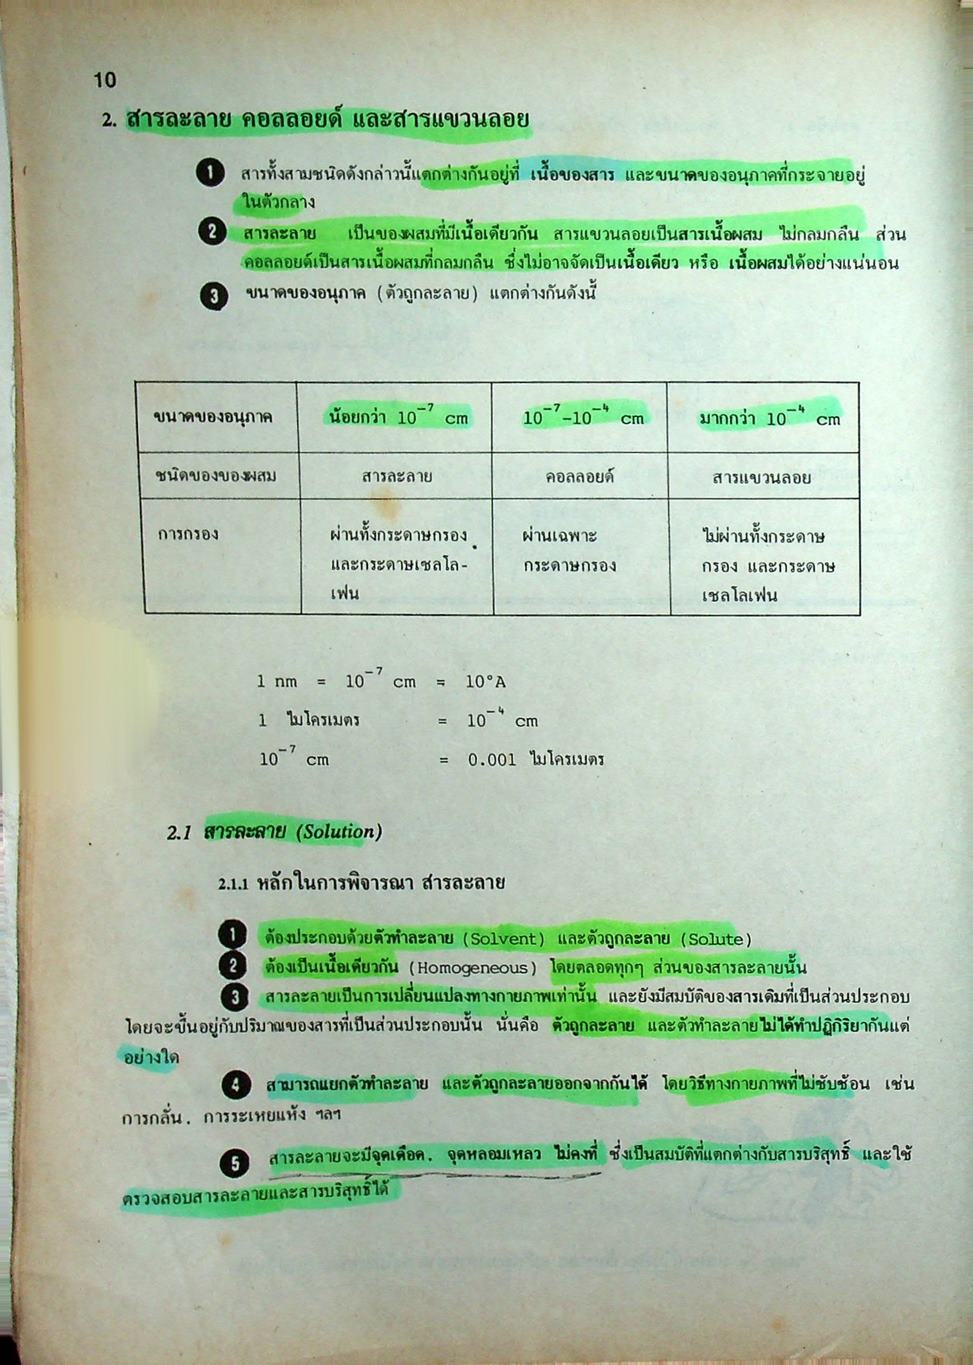 10
2. สารละลาย คอลลอยด์ และสารแขวนลอย
1 สารทั้งสามชนิดดังกล่าวนี้แตกต่างกันอยู่ที่ เนื้อของสาร และขนาดของอนุภาคที่กระจายอยู่
ในตัวกลาง
2 สารละลาย เป็นของผสมที่มีเนื้อเดียวกัน สารแขวนลอยเป็นสารเนื้อผสม ไม่กลมกลืน ส่วน
คอลลอยด์เป็นสารเนื้อผสมที่กลมกลืน ซึ่งไม่อาจจัดเป็นเนื้อเดียว หรือ เนื้อผสมได้อย่างแน่นอน
3 ขนาดของอนุภาค (ตัวถูกละลาย) แตกต่างกันดังนี้
ขนาดของอนุภาค น้อยกว่า 10⁻⁷ cm 10⁻⁷-10⁻⁴ cm มากกว่า 10⁻⁴ cm
ชนิดของของผสม สารละลาย คอลลอยด์ สารแขวนลอย
การกรอง ผ่านทั้งกระดาษกรอง ผ่านเฉพาะ ไม่ผ่านทั้งกระดาษ
และกระดาษเซลโล- กระดาษกรอง กรอง และกระดาษ
เฟน เซลโลเฟน
1 nm = 10⁻⁷ cm = 10°A
1 ไมโครเมตร = 10⁻⁴ cm
10⁻⁷ cm = 0.001 ไมโครเมตร
2.1 สารละลาย (Solution)
2.1.1 หลักในการพิจารณา สารละลาย
1 ต้องประกอบด้วยตัวทำละลาย (Solvent) และตัวถูกละลาย (Solute)
2 ต้องเป็นเนื้อเดียวกัน (Homogeneous) โดยตลอดทุกๆ ส่วนของสารละลายนั้น
3 สารละลายเป็นการเปลี่ยนแปลงทางกายภาพเท่านั้น และยังมีสมบัติของสารเดิมที่เป็นส่วนประกอบ
โดยจะขึ้นอยู่กับปริมาณของสารที่เป็นส่วนประกอบนั้น นั่นคือ ตัวถูกละลาย และตัวทำละลายไม่ได้ทำปฏิกิริยากันแต่
อย่างใด
4 สามารถแยกตัวทำละลาย และตัวถูกละลายออกจากกันได้ โดยวิธีทางกายภาพที่ไม่ซับซ้อน เช่น
การกลั่น. การระเหยแห้ง ฯลฯ
5 สารละลายจะมีจุดเดือด. จุดหลอมเหลว ไม่คงที่ ซึ่งเป็นสมบัติที่แตกต่างกับสารบริสุทธิ์ และใช้
ตรวจสอบสารละลายและสารบริสุทธิ์ได้